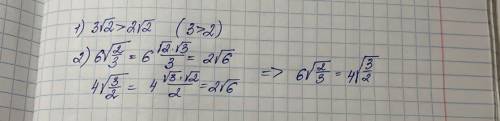 1) 3√2 > 2√2 (3>2)
2) 6√(2/3) = 6 (√2·√3)/3 = 2√6
4√(3/2) = 4 (√3·√2)/2 = 2√6 => 6√(2/3) = 4√(3/2)